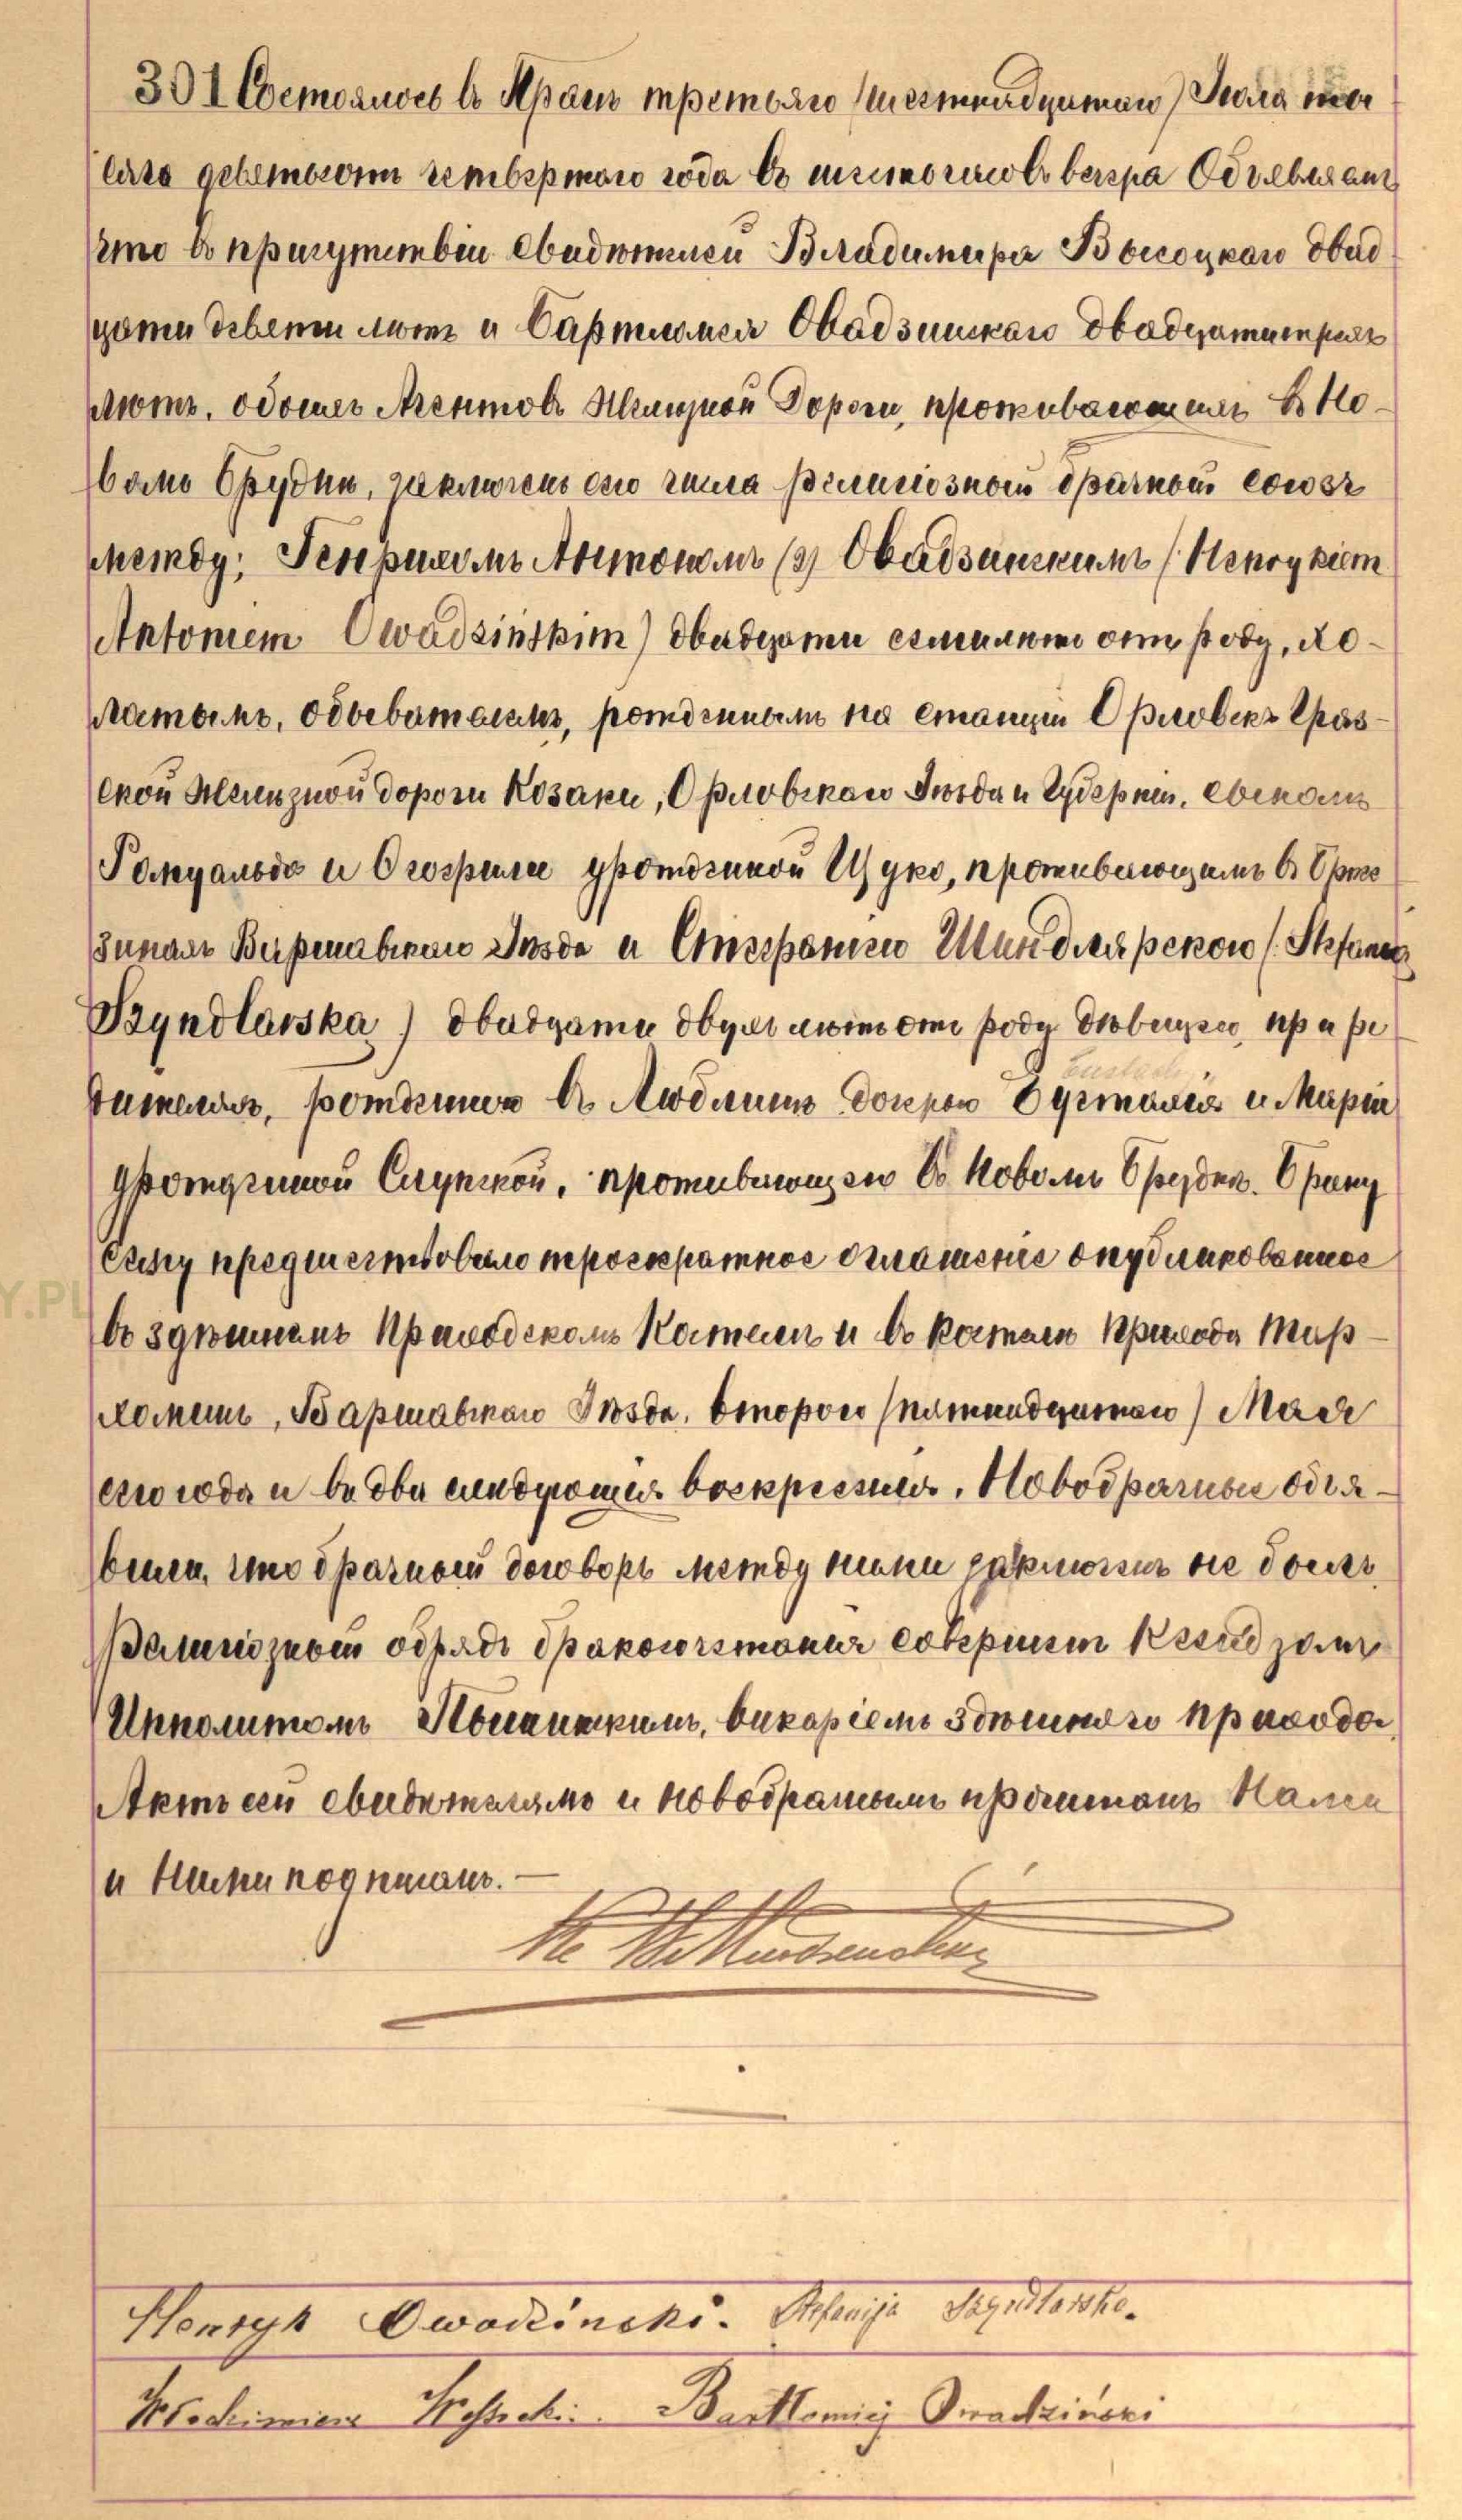 301 Состоялось въ Прагѣ третьяго (шестнадцатаго) Іюля тысяча
девятьсотъ четвертаго года въ шесть часовъ вечера Объявляемъ
что въ присутствіи свидѣтелей Владимира Высоцкаго двад
цати девяти лѣтъ и Бартломея Овадзинскаго двадцатитрехъ
лѣтъ, обоихъ Агентовъ Желѣзной Дороги, проживающихъ въ Но-
вомъ Брудно, заключенъ сего числа религіозный брачный союзъ
между: Генрихомъ Антономъ (2) Овадзинскимъ (Henrykiem
Antoniem Owadzińskim) двадцати семи лѣтъ отъ роду, хо-
лостымъ, рожденнымъ на станціи Орловско Гряз-
ской Желѣзной дороги Козаки, Орловскаго Уѣзда и Губерніи, сыномъ
Ромуальда и урожденной Щуко, проживающимъ въ
Варшавскаго Уѣзда и Стефаніею Шиндлярскою (Stefania
Szyndlarska) двадцати двухъ лѣтъ отъ роду дѣвицею, при ро
дителяхъ, рожденною въ Люблинѣ дочерью Еустахія и Маріи
Eustach
урожденной Слупской, проживающею въ Новомъ Брудно. Браку
сему предшествовало троекратное оглашеніе опубликованное
въ здѣшнемъ Приходскомъ Костелѣ и въ костелѣ прихода Тар-
хоминъ, Варшавскаго Уѣзда, второго (пятнадцатаго) Мая
сего года и въ два слѣдующія воскресенія. Новобрачные объя-
вили, что брачный договоръ между ними заключенъ не былъ
Религіозный обрядъ бракосочетанія совершенъ Ксендзомъ
Ипполитомъ викаріемъ здѣшняго прихода.
Актъ сей свидѣтелямъ и новобрачнымъ прочитанъ Нами
и Ними подписанъ. —
Henryk Owadzinski. Stefanija Szyndlarska.
Włodzimierz Wysocki. Bartłomiej Owadziński